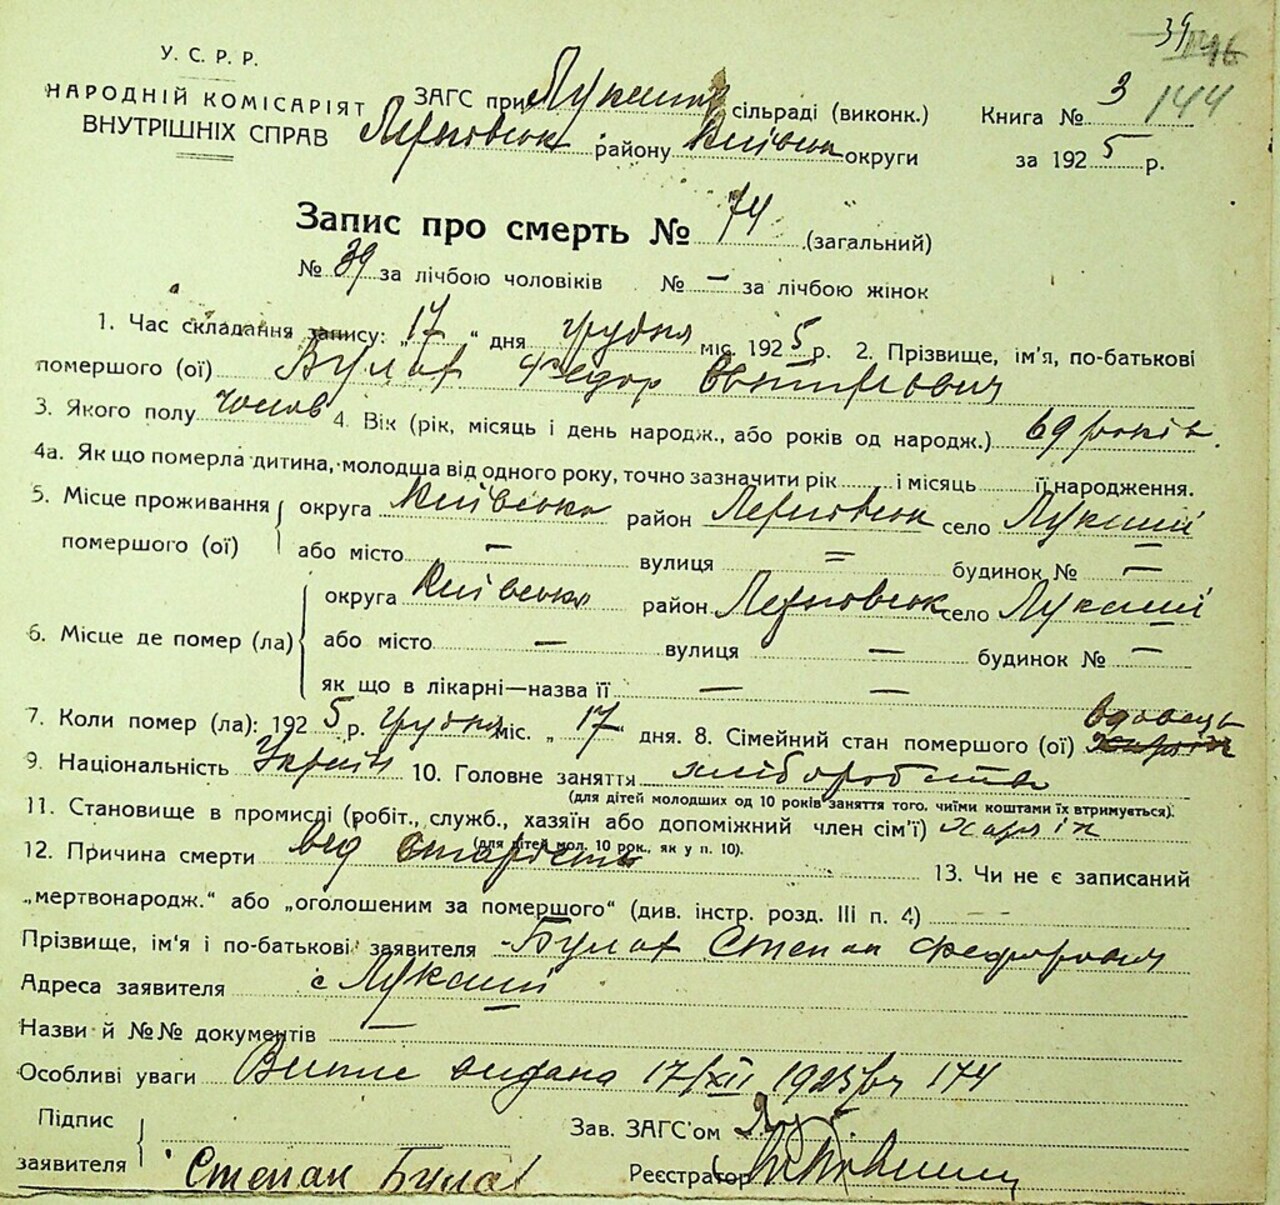 У. С. Р. Р.
НАРОДНІЙ КОМІСАРІЯТ
ВНУТРІШНІХ СПРАВ
ЗАГС при сільраді (виконк.)
району Київськ округи
Книга № 3 144
за 1925 р.
Запис про смерть № 74 (загальний)
№ 39 за лічбою чоловіків № — за лічбою жінок
1. Час складання запису: „17“ дня грудня міс. 1925 р. 2. Прізвище, ім'я, по-батькові
помершого (ої) Булат Федор
3. Якого полу чолов 4. Вік (рік, місяць і день народж., або років од народж.) 69 років.
4а. Як що померла дитина, молодша від одного року, точно зазначити рік і місяць її народження.
5. Місце проживання помершого (ої) округа Київська район село Лукаші
або місто — вулиця = будинок № —
6. Місце де помер (ла) округа Київська район село Лукаші
або місто — вулиця — будинок № —
як що в лікарні—назва її — —
7. Коли помер (ла): 1925 р. грудня міс. „17“ дня. 8. Сімейний стан помершого (ої) вдовець
9. Національність Україн 10. Головне заняття хліборобство
(для дітей молодших од 10 років заняття того, чиїми коштами їх втримується).
11. Становище в промислі (робіт., служб., хазяїн або допоміжний член сім'ї) хазяїн
(для дітей мол. 10 рок., як у п. 10).
12. Причина смерти від старість 13. Чи не є записаний
„мертвонародж.“ або „оголошеним за помершого“ (див. інстр. розд. III п. 4) — —
Прізвище, ім'я і по-батькові заявителя Булат Степан Федорович
Адреса заявителя с Лукаші
Назви й №№ документів —
Особливі уваги видана 17/XII 1925 174
Підпис заявителя Степан Булат
Зав. ЗАГС'ом
Реєстратор